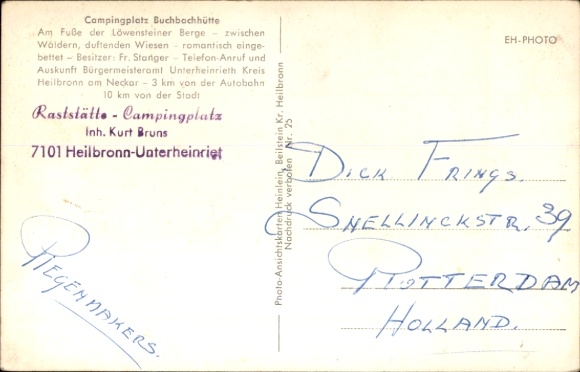 Campingplatz Buchbachhütte
Am Fuße der Löwensteiner Berge – zwischen
Wäldern, duftenden Wiesen – romantisch einge-
bettet – Besitzer: Fr. Stanger – Telefon-Anruf und
Auskunft Bürgermeisteramt Unterheinrieth Kreis
Heilbronn am Neckar – 3 km von der Autobahn
10 km von der Stadt
Raststätte - Campingplatz
Inh. Kurt Bruns
7101 Heilbronn-Unterheinriet
REGENMAKERS.
Photo-Ansichtskarten Heinlein, Beilstein Kr. Heilbronn
Nachdruck verboten Nr. 25
EH-PHOTO
DICK FRINGS.
SNELLINCKSTR. 39
ROTTERDAM
HOLLAND.